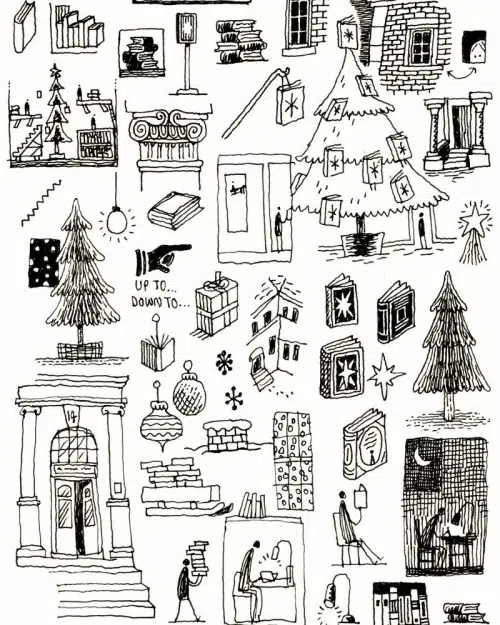 UP TO...
DOWN TO...
14